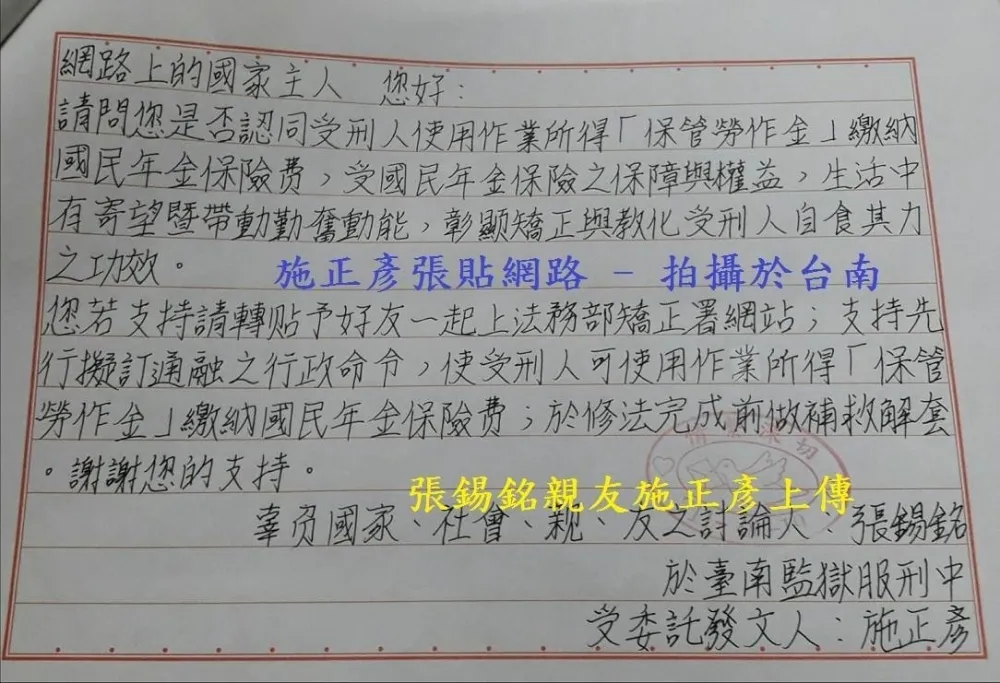 網路上的國家主人　您好：
請問您是否認同受刑人使用作業所得「保管勞作金」繳納
國民年金保險费，受國民年金保險之保障與權益，生活中
有寄望暨帶動勤奮動能，彰顯矯正與教化受刑人自食其力
之功效。
施正彥張貼網路 - 拍攝於台南
您若支持請轉贴予好友一起上法務部矯正署網站；支持先
行擬訂通融之行政命令，使受刑人可使用作業所得「保管
勞作金」繳納國民年金保險费；於修法完成前做補救解套
。謝謝您的支持。
張錫銘親友施正彥上傳
辜負國家、社會、親、友之討論人：張錫銘
於臺南監獄服刑中
受委託發文人：施正彥